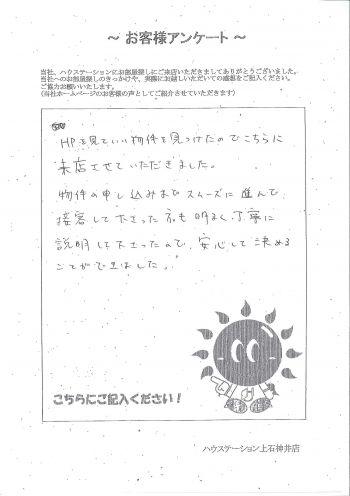 ～ お客様アンケート ～
当社、ハウステーションにお部屋探しにご来店いただきましてありがとうございました。
当社へのお部屋探しのきっかけや、実際にお越しいただいての感想をご記入ください。
ご協力お願いいたします。
（当社ホームページのお客様の声としてご紹介させていただきます）
HPを見ていい物件を見つけたのでこちらに
来店させていただきました。
物件の申し込みまでスムーズに進んで
接客して下さった方も明るく丁寧に
説明して下さったので、安心して決める
ことができました。
こちらにご記入ください！
ハウステーション上石神井店